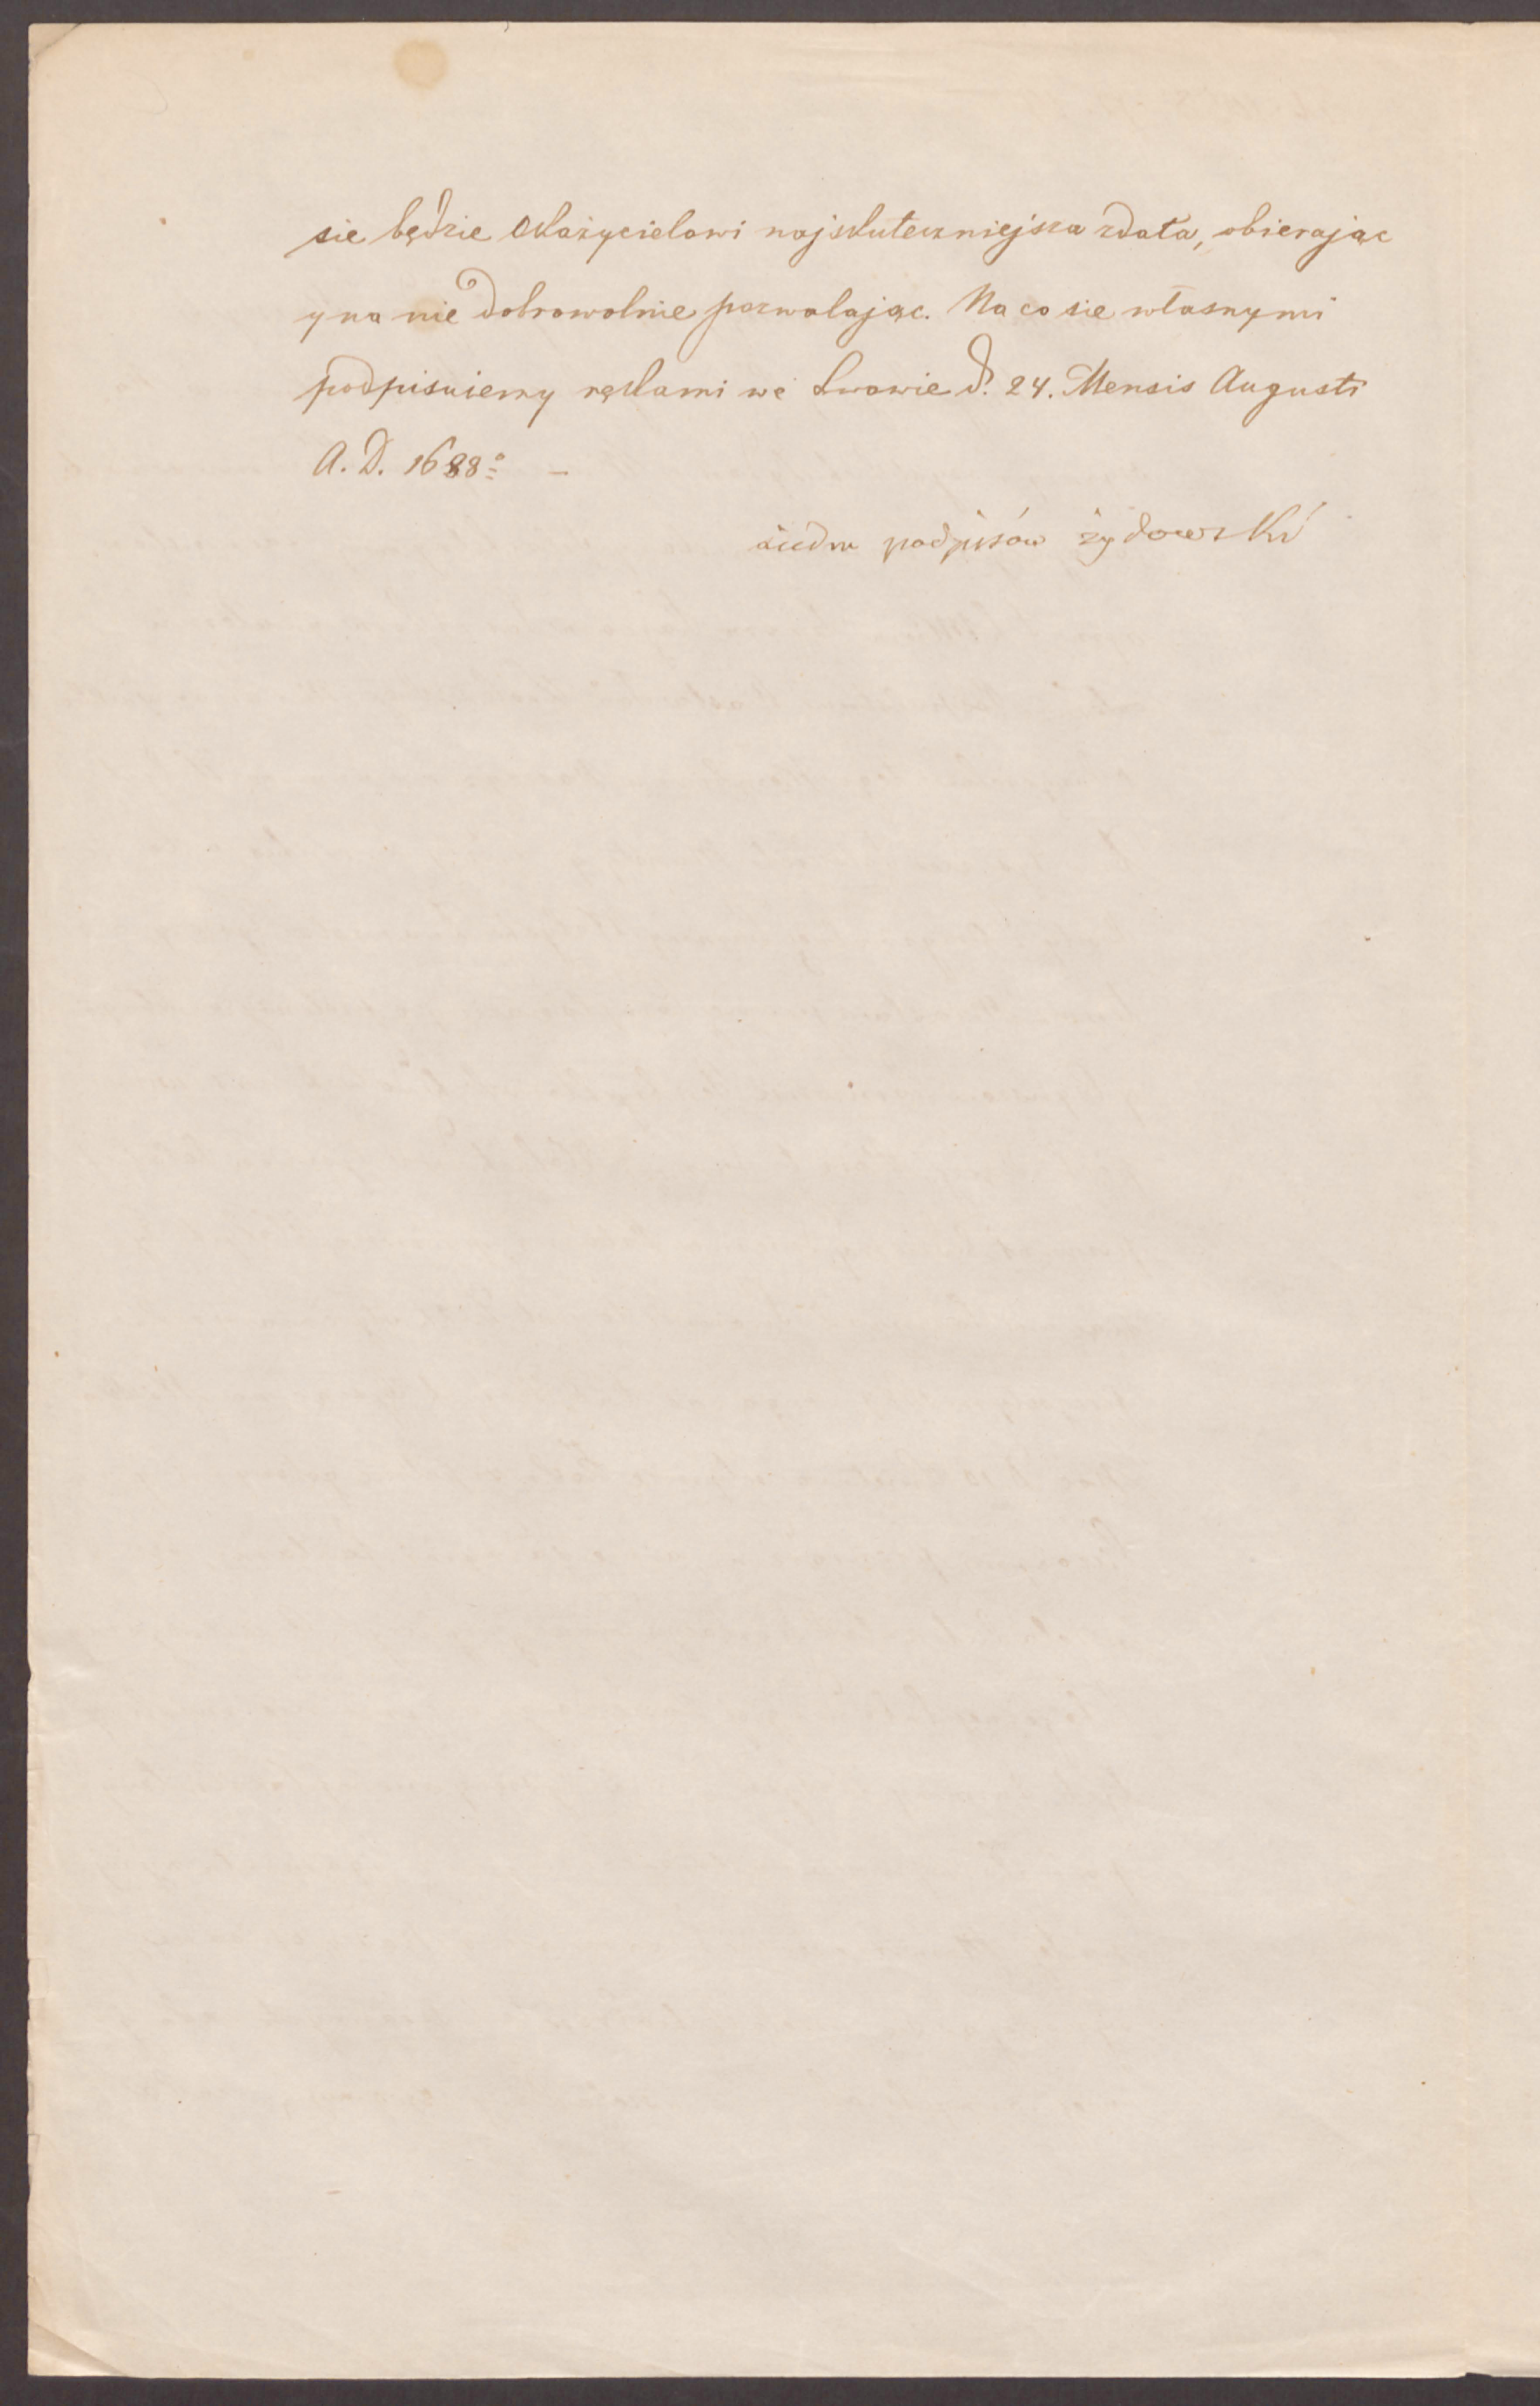 sie będzie Okazycielowi najskuteczniejsza zdała, obierając
y na nie dobrowolnie pozwalając. Na co sie własnymi
podpisuiemy rękami we Lwowie d. 24. Mensis Augusti
A. D. 1688º –
siedm podpisów żydowski